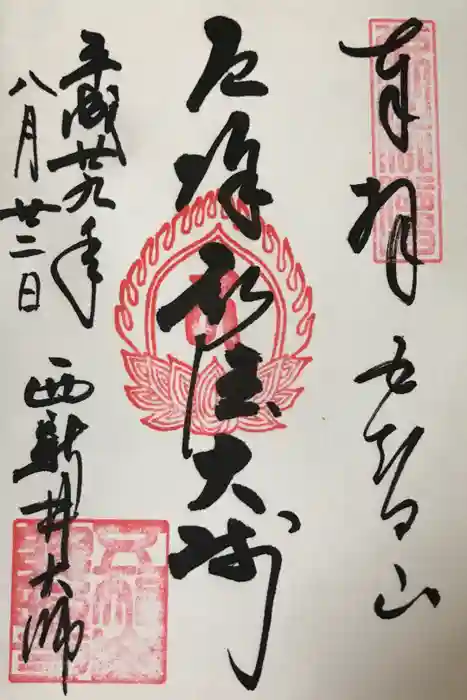 奉拝 五智山
厄除弘法大師
平成廿九年
八月廿二日
西新井大師